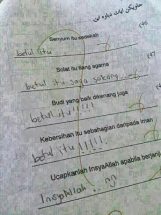 Senyum itu sedekah
betul itu
Solat itu tiang agama
betul itu saya sokong
Budi yang baik dikenang juga
betul itu!!!!!
Kebersihan itu sebahagian daripada iman
betul itu!!!!!
Ucapkanlah InsyaAllah apabila berjanji
InsyAllah